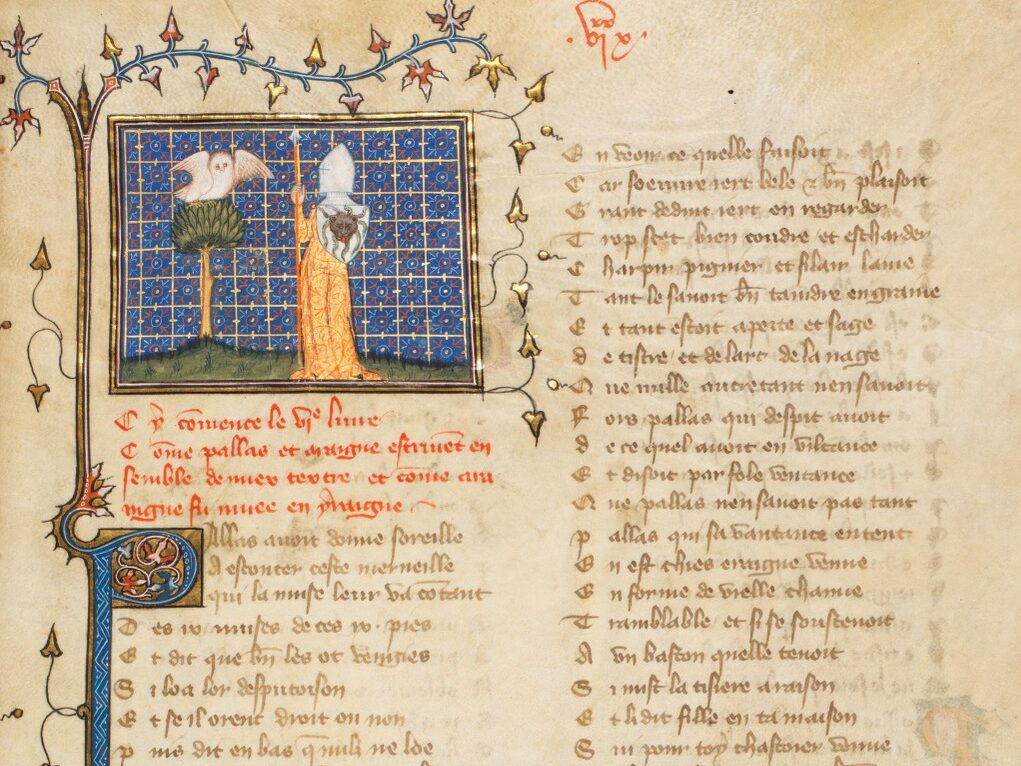 Cy cōmence le vi͏e liure
Cōme pallas et araigne estriuēt en
semble de miex textre et cōme ara
nigne fu muee en yraigne
Pallas auoit donne soreille
A escouter ceste merueille
qui la muse leur va cōtant
Des ix muses de ces ix pies
Et dit que bn̄ les ot vengies
Si loa lor desputoison
Et se il orent droit ou non
puis dit en bas q̄ nulz ne lot
vi xx ix
En veoir ce quelle faisoit
Car soeuure iert bele et bn̄ plaisoit
Grant deduit iert en regarder
Trop scet bien coudre et escharder
Charpir pignier et filair laine
Tant le sauoit bn̄ taindre en graine
Et tant estoit aperte et sage
de tistre et de lart de la nage
Que mille autretant nen sauoit
Fors pallas qui despit auoit
de ce quel auoit en viltance
Et disoit par fole ventance
Que pallas nen sauoit pas tant
pallas qui sa vantance entent
En est chies eraigne venue
En forme de vielle chanue
Tramblable et si se soustenoit
A vn baston quelle tenoit
Si mist la tisiere a raison
Et li dit fille en ta maison
Sui pour toy chastoier venue